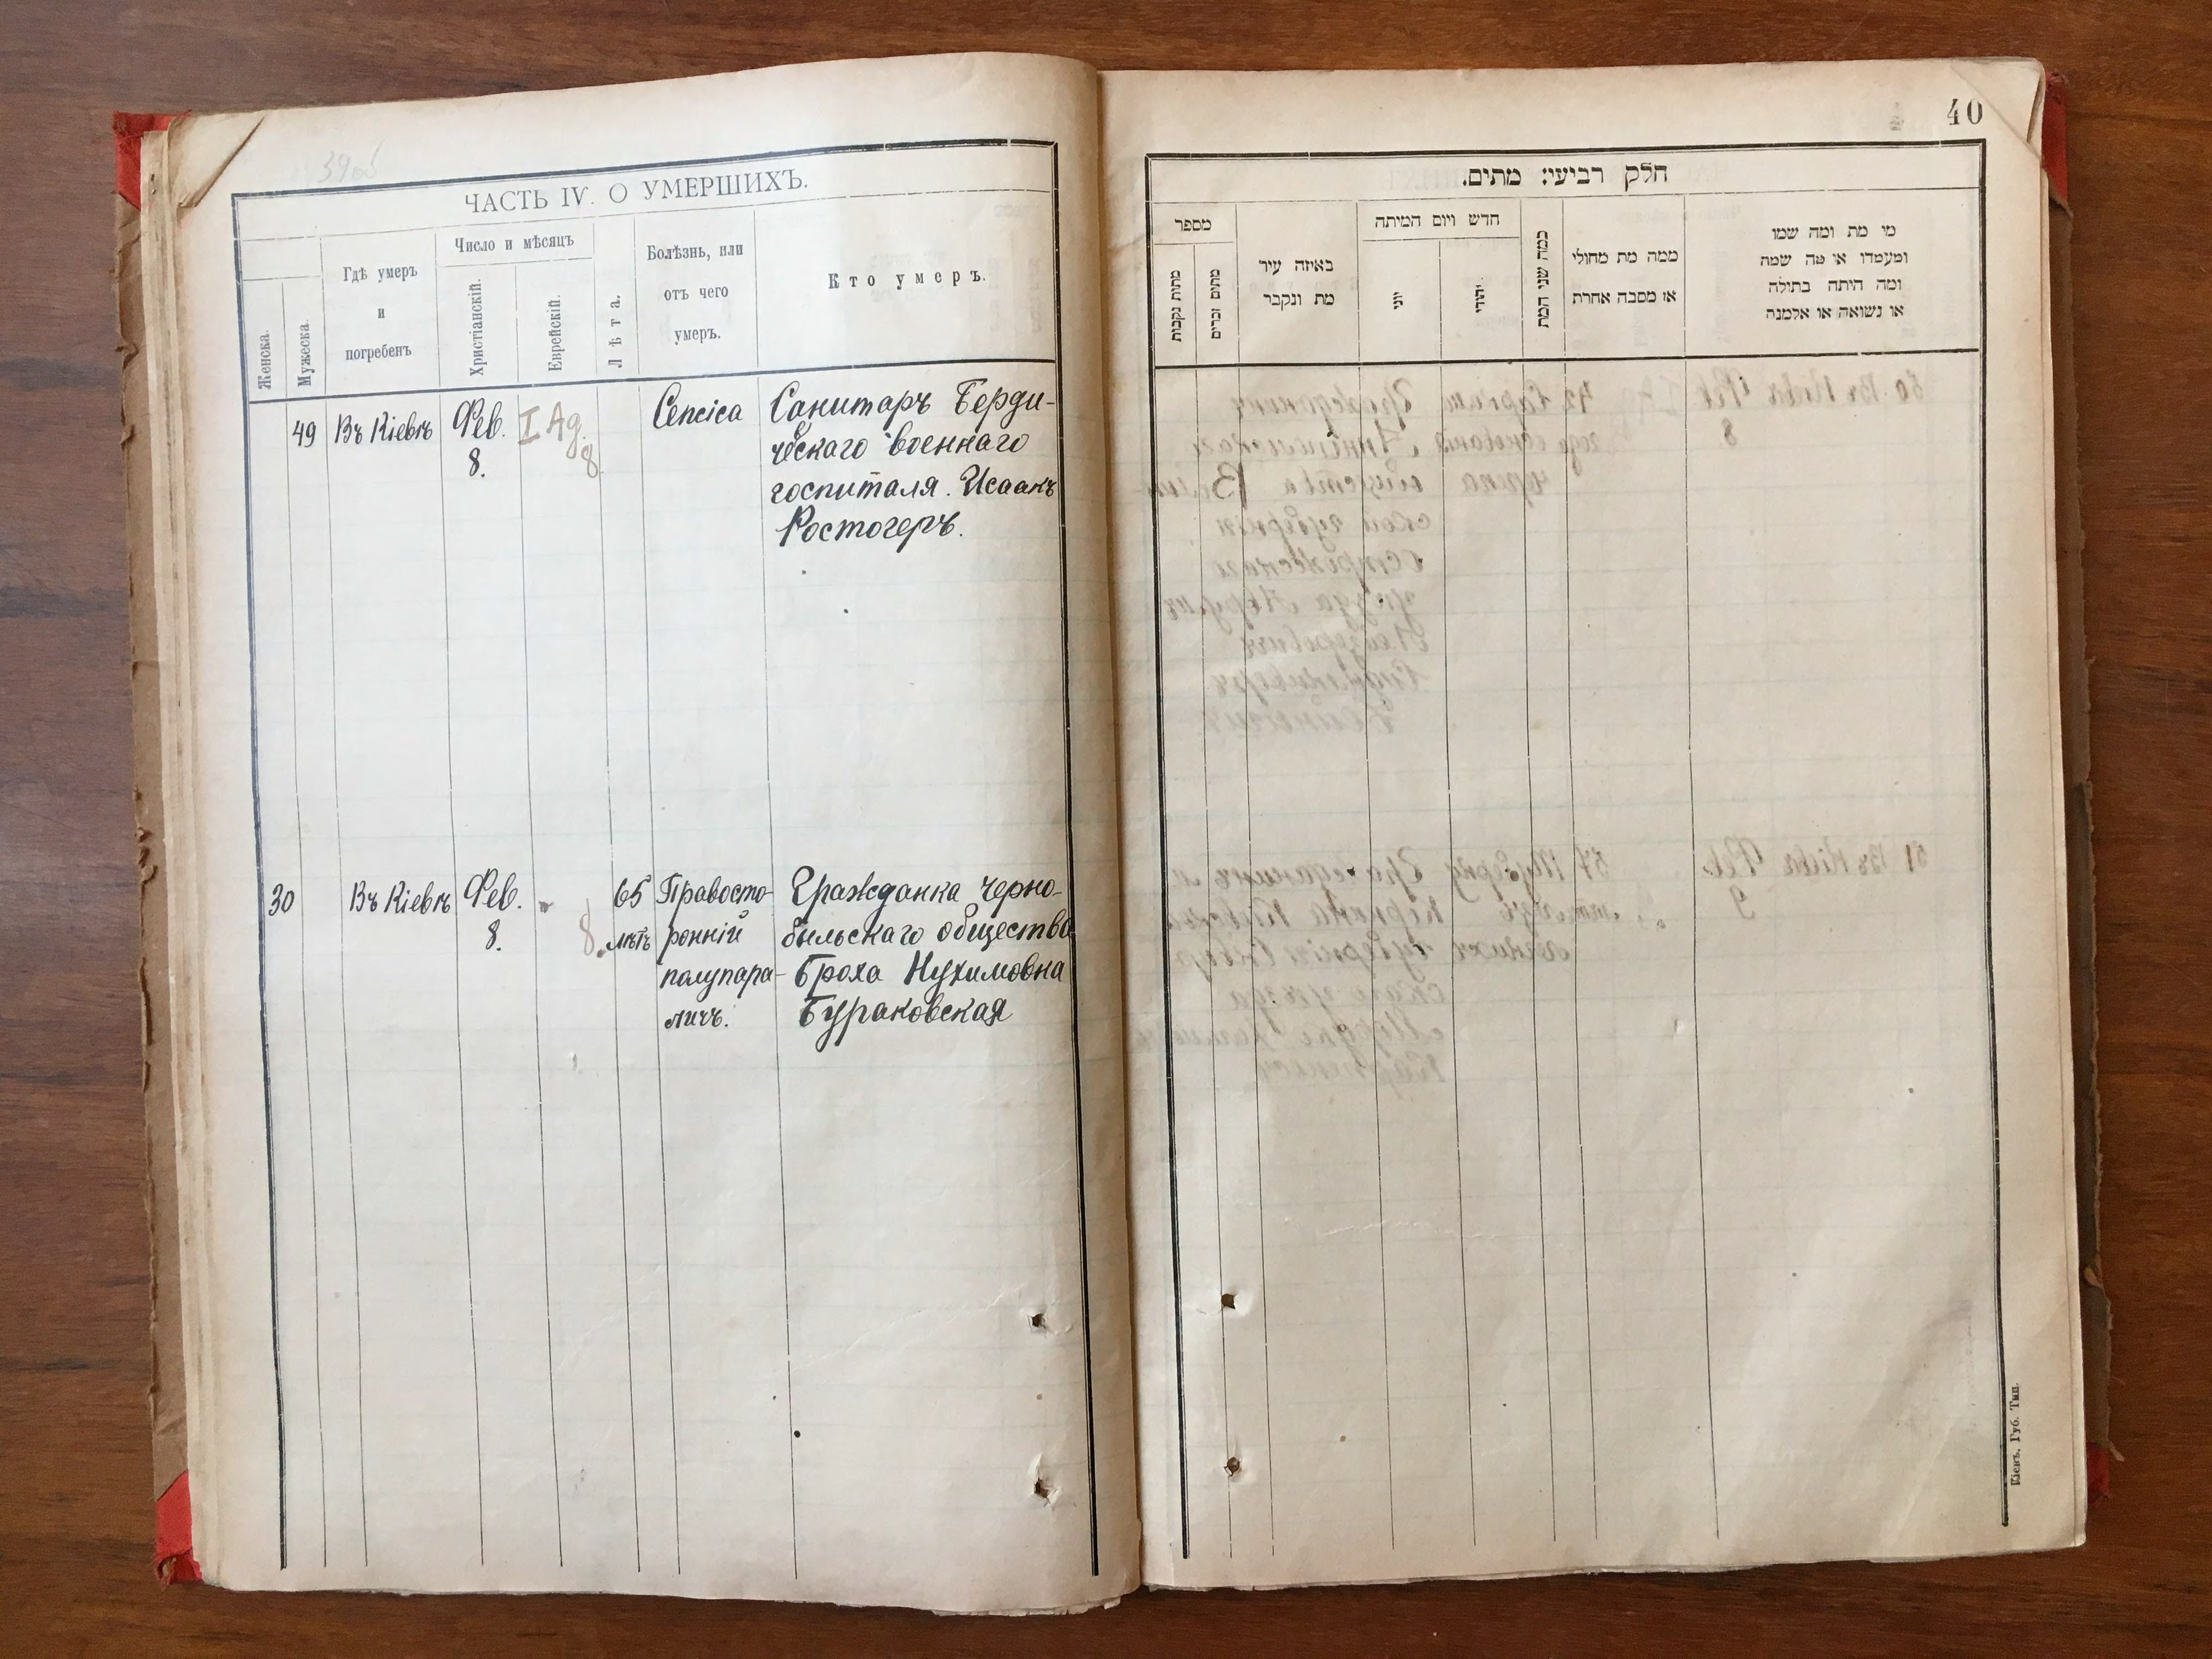 39об
ЧАСТЬ IV. О УМЕРШИХЪ.
Женска.
Мужеска.
Гдѣ умеръ
и
погребенъ
Число и мѣсяцъ
Христіанскій.
Еврейскій.
Лѣта.
Болѣзнь, или
отъ чего
умеръ.
Кто умеръ.
49
Въ Кіевѣ
Фев.
8.
I Ад.
8
Сепсіса
Санитаръ Берди-
ческаго военнаго
госпиталя. Исаакъ
Ростогеръ.
30
Въ Кіевѣ
Фев.
8.
8
65
лѣтъ
Правосто-
ронній
полупара-
личъ.
Гражданка Черно-
быльскаго общества
Броха Нухимовна
Бураковская
40
חלק רביעי: מתים.
מספר
מתות נקבות
מתים זכרים
באיזה עיר
מת ונקבר
חדש ויום המיתה
יוני
יהודי
כמה שני המת
ממה מת מחולי
או מסבה אחרת
מי מת ומה שמו
ומעמדו או מה שמה
ומה היתה בתולה
או נשואה או אלמנה
Кіевъ, Губ. Тип.